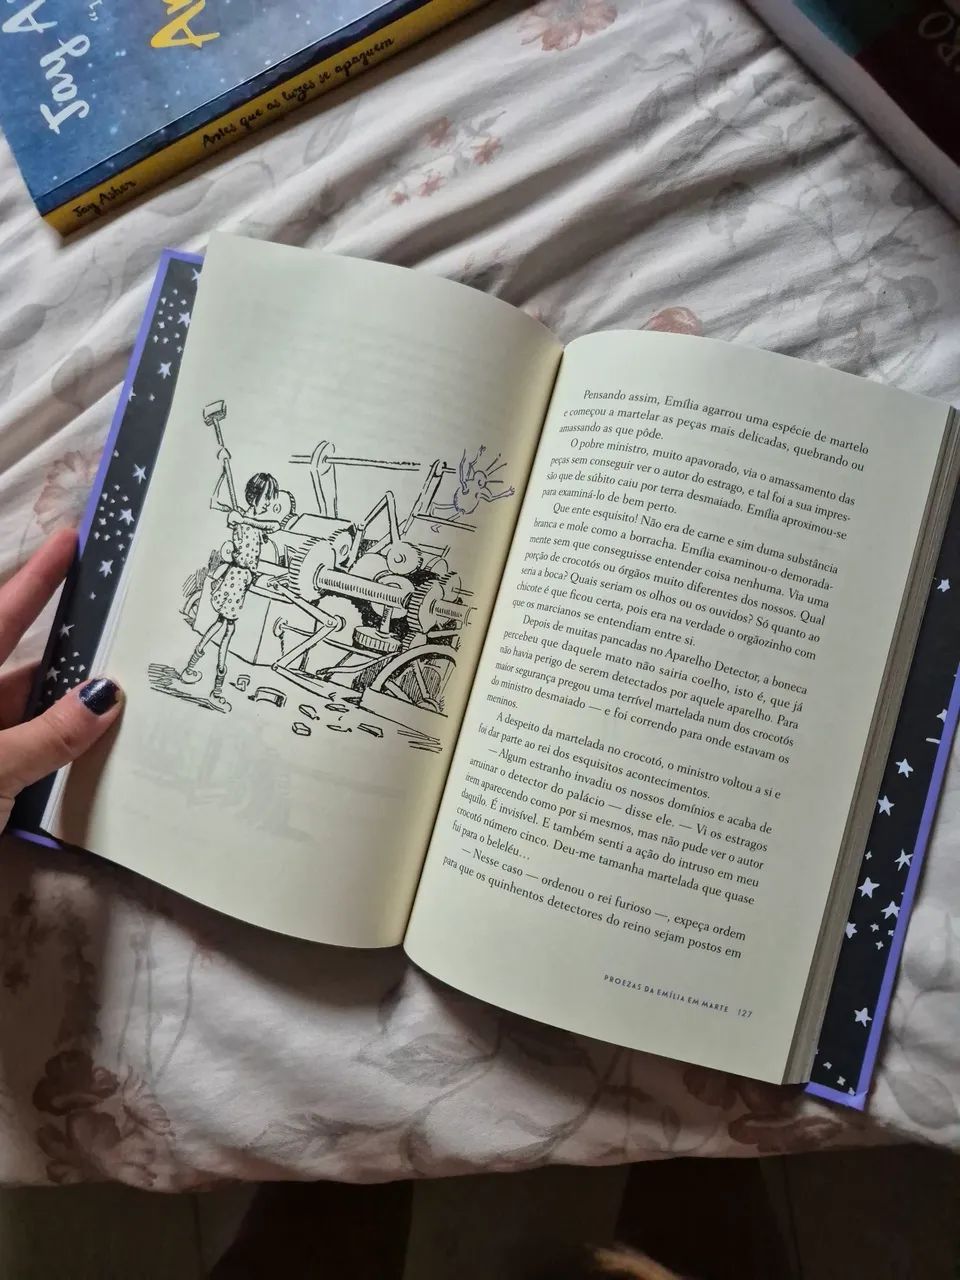 Jay A
Antes que as luzes se apaguem
Jay Asher
Pensando assim, Emília agarrou uma espécie de martelo
e começou a martelar as peças mais delicadas, quebrando ou
amassando as que pôde.
O pobre ministro, muito apavorado, via o amassamento das
peças sem conseguir ver o autor do estrago, e tal foi a sua impres-
são que de súbito caiu por terra desmaiado. Emília aproximou-se
para examiná-lo de bem perto.
Que ente esquisito! Não era de carne e sim duma substância
branca e mole como a borracha. Emília examinou-o demorada-
mente sem que conseguisse entender coisa nenhuma. Via uma
porção de crocotós ou órgãos muito diferentes dos nossos. Qual
seria a boca? Quais seriam os olhos ou os ouvidos? Só quanto ao
chicote é que ficou certa, pois era na verdade o orgãozinho com
que os marcianos se entendiam entre si.
Depois de muitas pancadas no Aparelho Detector, a boneca
percebeu que daquele mato não sairia coelho, isto é, que já
não havia perigo de serem detectados por aquele aparelho. Para
maior segurança pregou uma terrível martelada num dos crocotós
do ministro desmaiado — e foi correndo para onde estavam os
meninos.
A despeito da martelada no crocotó, o ministro voltou a si e
foi dar parte ao rei dos esquisitos acontecimentos.
— Algum estranho invadiu os nossos domínios e acaba de
arruinar o detector do palácio — disse ele. — Vi os estragos
irem aparecendo como por si mesmos, mas não pude ver o autor
daquilo. É invisível. E também senti a ação do intruso em meu
crocotó número cinco. Deu-me tamanha martelada que quase
fui para o beleléu...
— Nesse caso — ordenou o rei furioso —, expeça ordem
para que os quinhentos detectores do reino sejam postos em
PROEZAS DA EMÍLIA EM MARTE 127